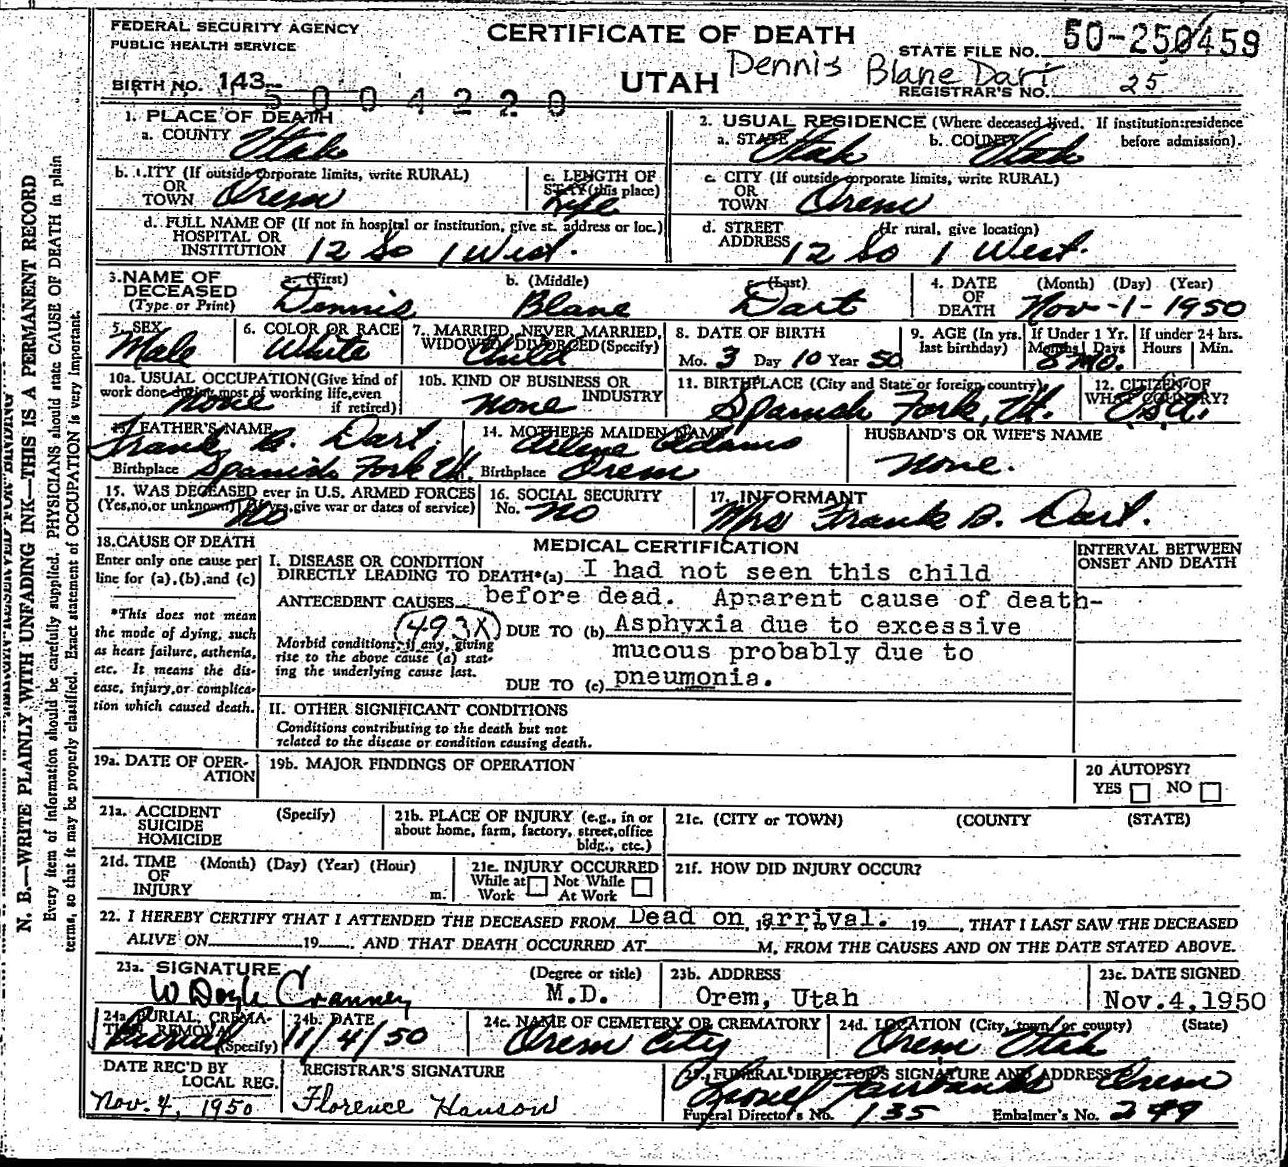 FEDERAL SECURITY AGENCY
PUBLIC HEALTH SERVICE
CERTIFICATE OF DEATH
STATE FILE NO. 50-250459
Dennis Blane Dart
BIRTH NO. 143-
UTAH
REGISTRAR'S NO. 25
5004220
1. PLACE OF DEATH
a. COUNTY Utah
2. USUAL RESIDENCE (Where deceased lived. If institution: residence before admission).
a. STATE Utah b. COUNTY Utah
b. CITY (If outside corporate limits, write RURAL) OR TOWN Orem
c. LENGTH OF STAY (this place) Life
c. CITY (If outside corporate limits, write RURAL) OR TOWN Orem
d. FULL NAME OF (If not in hospital or institution, give st. address or loc.) HOSPITAL OR INSTITUTION 12 So 1 West.
d. STREET ADDRESS (If rural, give location) 12 So 1 West.
3. NAME OF DECEASED (Type or Print)
a. (First) Dennis
b. (Middle) Blane
c. (Last) Dart
4. DATE OF DEATH (Month) (Day) (Year) Nov-1-1950
5. SEX Male
6. COLOR OR RACE White
7. MARRIED, NEVER MARRIED, WIDOWED, DIVORCED (Specify) Child
8. DATE OF BIRTH Mo. 3 Day 10 Year 50
9. AGE (In yrs. last birthday)
If Under 1 Yr. Months Days 8 mo.
If under 24 hrs. Hours Min.
10a. USUAL OCCUPATION (Give kind of work done during most of working life, even if retired) None
10b. KIND OF BUSINESS OR INDUSTRY None
11. BIRTHPLACE (City and State or foreign country) Spanish Fork, Ut.
12. CITIZEN OF WHAT COUNTRY? U.S.A.
13. FATHER'S NAME Frank B. Dart.
Birthplace Spanish Fork Ut.
14. MOTHER'S MAIDEN NAME Arlene Adams
Birthplace Orem
HUSBAND'S OR WIFE'S NAME None.
15. WAS DECEASED ever in U.S. ARMED FORCES (Yes, no, or unknown) (If yes, give war or dates of service) No
16. SOCIAL SECURITY No. No
17. INFORMANT Mrs Frank B. Dart.
18. CAUSE OF DEATH
Enter only one cause per line for (a), (b), and (c)
*This does not mean the mode of dying, such as heart failure, asthenia, etc. It means the disease, injury, or complication which caused death.
MEDICAL CERTIFICATION
INTERVAL BETWEEN ONSET AND DEATH
I. DISEASE OR CONDITION DIRECTLY LEADING TO DEATH*(a) I had not seen this child
ANTECEDENT CAUSES before dead. Apparent cause of death-
(493X) DUE TO (b) Asphyxia due to excessive
Morbid conditions, if any, giving rise to the above cause (a) stating the underlying cause last.
mucous probably due to
DUE TO (c) pneumonia.
II. OTHER SIGNIFICANT CONDITIONS
Conditions contributing to the death but not related to the disease or condition causing death.
19a. DATE OF OPERATION
19b. MAJOR FINDINGS OF OPERATION
20 AUTOPSY? YES NO
21a. ACCIDENT SUICIDE HOMICIDE (Specify)
21b. PLACE OF INJURY (e.g., in or about home, farm, factory, street, office bldg., etc.)
21c. (CITY or TOWN) (COUNTY (STATE)
21d. TIME OF INJURY (Month) (Day) (Year) (Hour) m.
21e. INJURY OCCURRED While at Work Not While At Work
21f. HOW DID INJURY OCCUR?
22. I HEREBY CERTIFY THAT I ATTENDED THE DECEASED FROM Dead on arrival. 19 , to 19 , THAT I LAST SAW THE DECEASED
ALIVE ON 19 , AND THAT DEATH OCCURRED AT M, FROM THE CAUSES AND ON THE DATE STATED ABOVE.
23a. SIGNATURE W Doyle Cranney (Degree or title) M.D.
23b. ADDRESS Orem, Utah
23c. DATE SIGNED Nov.4,1950
24a BURIAL, CREMATION, REMOVAL (Specify) Burial
24b. DATE 11/4/50
24c. NAME OF CEMETERY OR CREMATORY Orem City
24d. LOCATION (City, town, or county) (State) Orem Utah
DATE REC'D BY LOCAL REG. Nov. 4, 1950
REGISTRAR'S SIGNATURE Florence Hanson
25. FUNERAL DIRECTOR'S SIGNATURE AND ADDRESS Lionel Fairbanks Orem
Funeral Director's No. 135 Embalmer's No. 249
N. B.—WRITE PLAINLY WITH UNFADING INK—THIS IS A PERMANENT RECORD
Every item of information should be carefully supplied. PHYSICIANS should state CAUSE OF DEATH in plain
terms, so that it may be properly classified. Exact statement of OCCUPATION is very important.